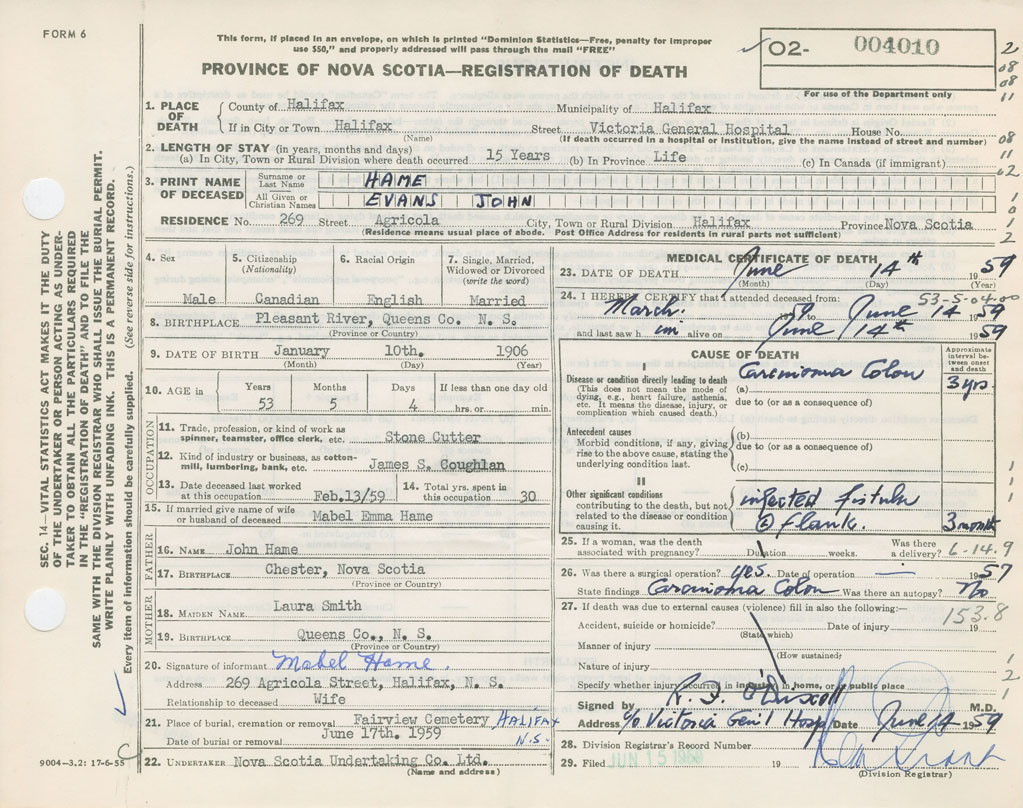 FORM 6
This form, if placed in an envelope, on which is printed "Dominion Statistics—Free, penalty for improper
use $50," and properly addressed will pass through the mail "FREE"
02- 004010
For use of the Department only
PROVINCE OF NOVA SCOTIA—REGISTRATION OF DEATH
2
08
08
11
08
11
02
1
0
1
2
SEC. 14—VITAL STATISTICS ACT MAKES IT THE DUTY
OF THE UNDERTAKER OR PERSON ACTING AS UNDER-
TAKER TO OBTAIN ALL THE PARTICULARS REQUIRED
IN THE "REGISTRATION OF DEATH" AND TO FILE THE
SAME WITH THE DIVISION REGISTRAR WHO SHALL ISSUE THE BURIAL PERMIT.
WRITE PLAINLY WITH UNFADING INK. THIS IS A PERMANENT RECORD.
Every item of information should be carefully supplied. (See reverse side for instructions.)
1. PLACE OF DEATH County of Halifax Municipality of Halifax
If in City or Town Halifax Street Victoria General Hospital House No.
(Name) (If death occurred in a hospital or institution, give the name instead of street and number)
2. LENGTH OF STAY (in years, months and days)
(a) In City, Town or Rural Division where death occurred 15 Years (b) In Province Life (c) In Canada (if immigrant)
3. PRINT NAME OF DECEASED Surname or Last Name HAME
All Given or Christian Names EVANS JOHN
RESIDENCE No. 269 Street Agricola City, Town or Rural Division Halifax Province Nova Scotia
(Residence means usual place of abode. Post Office Address for residents in rural parts not sufficient)
4. Sex 5. Citizenship (Nationality) 6. Racial Origin 7. Single, Married, Widowed or Divorced (write the word)
Male Canadian English Married
8. BIRTHPLACE Pleasant River, Queens Co. N. S.
(Province or Country)
9. DATE OF BIRTH January 10th. 1906
(Month) (Day) (Year)
10. AGE in Years Months Days If less than one day old
53 5 4 hrs. or min.
OCCUPATION
11. Trade, profession, or kind of work as spinner, teamster, office clerk, etc. Stone Cutter
12. Kind of industry or business, as cotton-mill, lumbering, bank, etc. James S. Coughlan
13. Date deceased last worked at this occupation Feb.13/59 14. Total yrs. spent in this occupation 30
15. If married give name of wife or husband of deceased Mabel Emma Hame
FATHER
16. NAME John Hame
17. BIRTHPLACE Chester, Nova Scotia
(Province or Country)
MOTHER
18. MAIDEN NAME Laura Smith
19. BIRTHPLACE Queens Co., N. S.
(Province or Country)
20. Signature of informant Mabel Hame.
Address 269 Agricola Street, Halifax, N. S.
Relationship to deceased Wife
21. Place of burial, cremation or removal Fairview Cemetery HALIFAX
Date of burial or removal June 17th. 1959 N.S.
22. UNDERTAKER Nova Scotia Undertaking Co. Ltd.
(Name and address)
9004-3.2: 17-6-55 C
MEDICAL CERTIFICATE OF DEATH
23. DATE OF DEATH June 14th 1959
(Month) (Day) (Year)
53-5-04-00
24. I HEREBY CERTIFY that I attended deceased from:
March. 1959 June 14 1959
and last saw h im alive on June 14th 1959
CAUSE OF DEATH
Approximate interval between onset and death
I
Disease or condition directly leading to death
(This does not mean the mode of dying, e.g., heart failure, asthenia, etc. It means the disease, injury, or complication which caused death.)
(a) Carcinoma Colon 3 yrs.
due to (or as a consequence of)
Antecedent causes
Morbid conditions, if any, giving rise to the above cause, stating the underlying condition last.
(b)
due to (or as a consequence of)
(c)
II
Other significant conditions
contributing to the death, but not related to the disease or condition causing it.
infected fistula
flank. 3 month
25. If a woman, was the death associated with pregnancy? Duration weeks. Was there a delivery? 6-14.9
26. Was there a surgical operation? yes. Date of operation — 1957
State findings Carcinoma Colon Was there an autopsy? No
27. If death was due to external causes (violence) fill in also the following:—
153.8
Accident, suicide or homicide? Date of injury 19
(State which)
Manner of injury
(How sustained)
Nature of injury
Specify whether injury occurred in industry, in home, or in public place
Signed by R. J. O'Driscoll M.D.
Address c/o Victoria Gen'l Hosp Date June 14 1959
28. Division Registrar's Record Number
29. Filed JUN 15 1959 19
(Division Registrar)
1
1
1
1
2
1